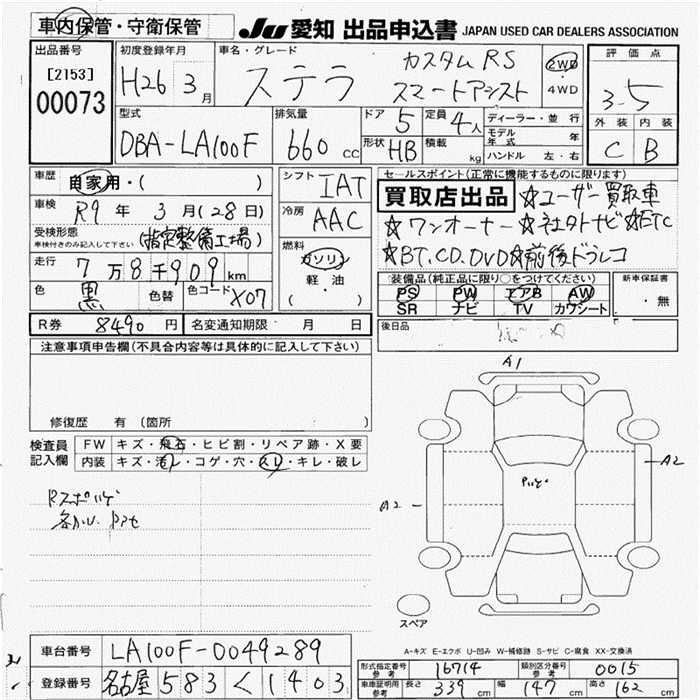 車内保管・守衛保管 JU 愛知 出品申込書 JAPAN USED CAR DEALERS ASSOCIATION
出品番号 [2153] 00073
初度登録年月 H26 3月
車名・グレード ステラ カスタムRS スマートアシスト
2WD 4WD
評価点 3.5
外装 C 内装 B
型式 DBA-LA100F
排気量 660 cc
ドア 5 定員 4人
形状 HB 積載 kg
ディーラー・並行
モデル年式 年
ハンドル 左・右
車歴 自家用・( )
車検 R9年 3月(28日)
受検形態 (指定整備工場)
車検付きのみ記入して下さい
走行 7万8千909km
色 黒 色替 色コード X07
シフト IAT
冷房 AAC
燃料 ガソリン 軽油
セールスポイント(正常に機能するものに限ります)
買取店出品 ☆ユーザー買取車
☆ワンオーナー☆社外ナビ☆ETC
☆BT.CD.DVD☆前後ドラレコ
装備品(純正品に限り○をつけてください)
PS PW エアB AW
SR ナビ TV カワシート
新車保証書 ・無
後日品
R券 8490円 名変通知期限 月 日
注意事項申告欄(不具合内容等は具体的に記入して下さい)
修復歴 有 (箇所 )
検査員記入欄
FW キズ・飛石・ヒビ割・リペア跡・X要
内装 キズ・汚レ・コゲ・穴・スレ・キレ・破レ
A1
A2
A2
スペア
A-キズ E-エクボ U-凹み W-補修跡 S-サビ C-腐食 XX-交換済
車台番号 LA100F-0049289
登録番号 名古屋 583 く 1403
形式指定番号 参考 16714 類別区分番号 参考 0015
車庫証明用 参考 長さ 339 cm 幅 147 cm 高さ 162 cm